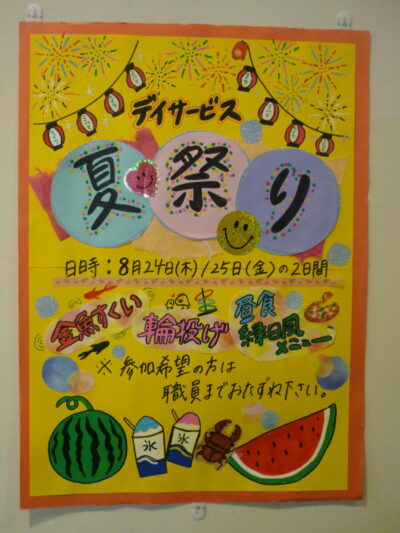 デイサービス
夏祭り
日時：8月24日(木)/25日(金)の2日間
金魚すくい
輪投げ
昼食
縁日風
メニュー
※参加希望の方は
職員までおたずね下さい。
氷
氷